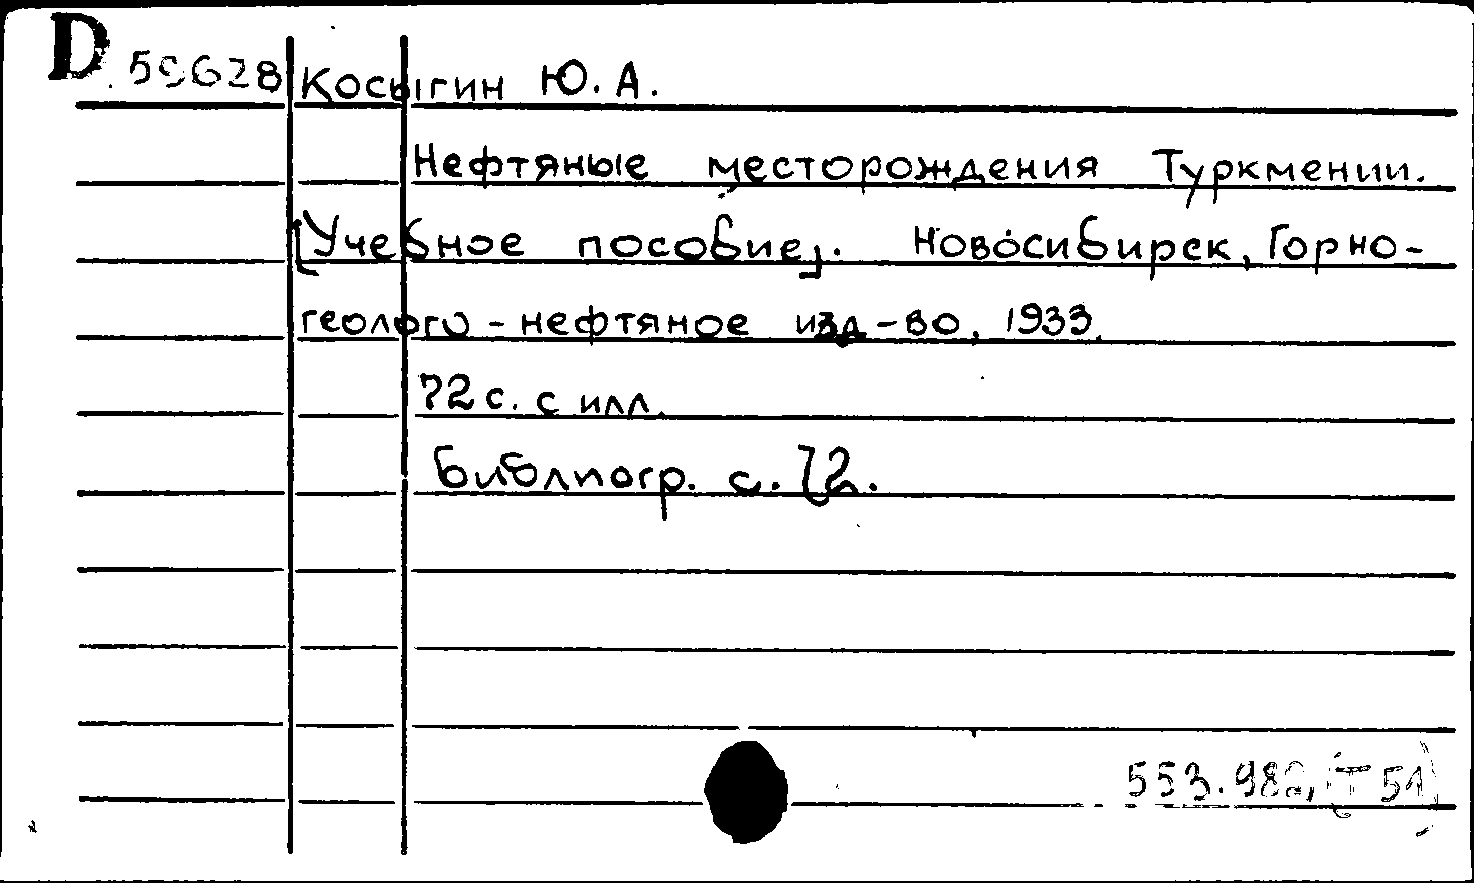 D 59628 Косыгин Ю. А.
Нефтяные месторождения Туркмении.
[Учебное пособие]. Новосибирск, Горно-
геолого-нефтяное изд-во, 1933.
72 с. с илл.
Библиогр. с. 72.